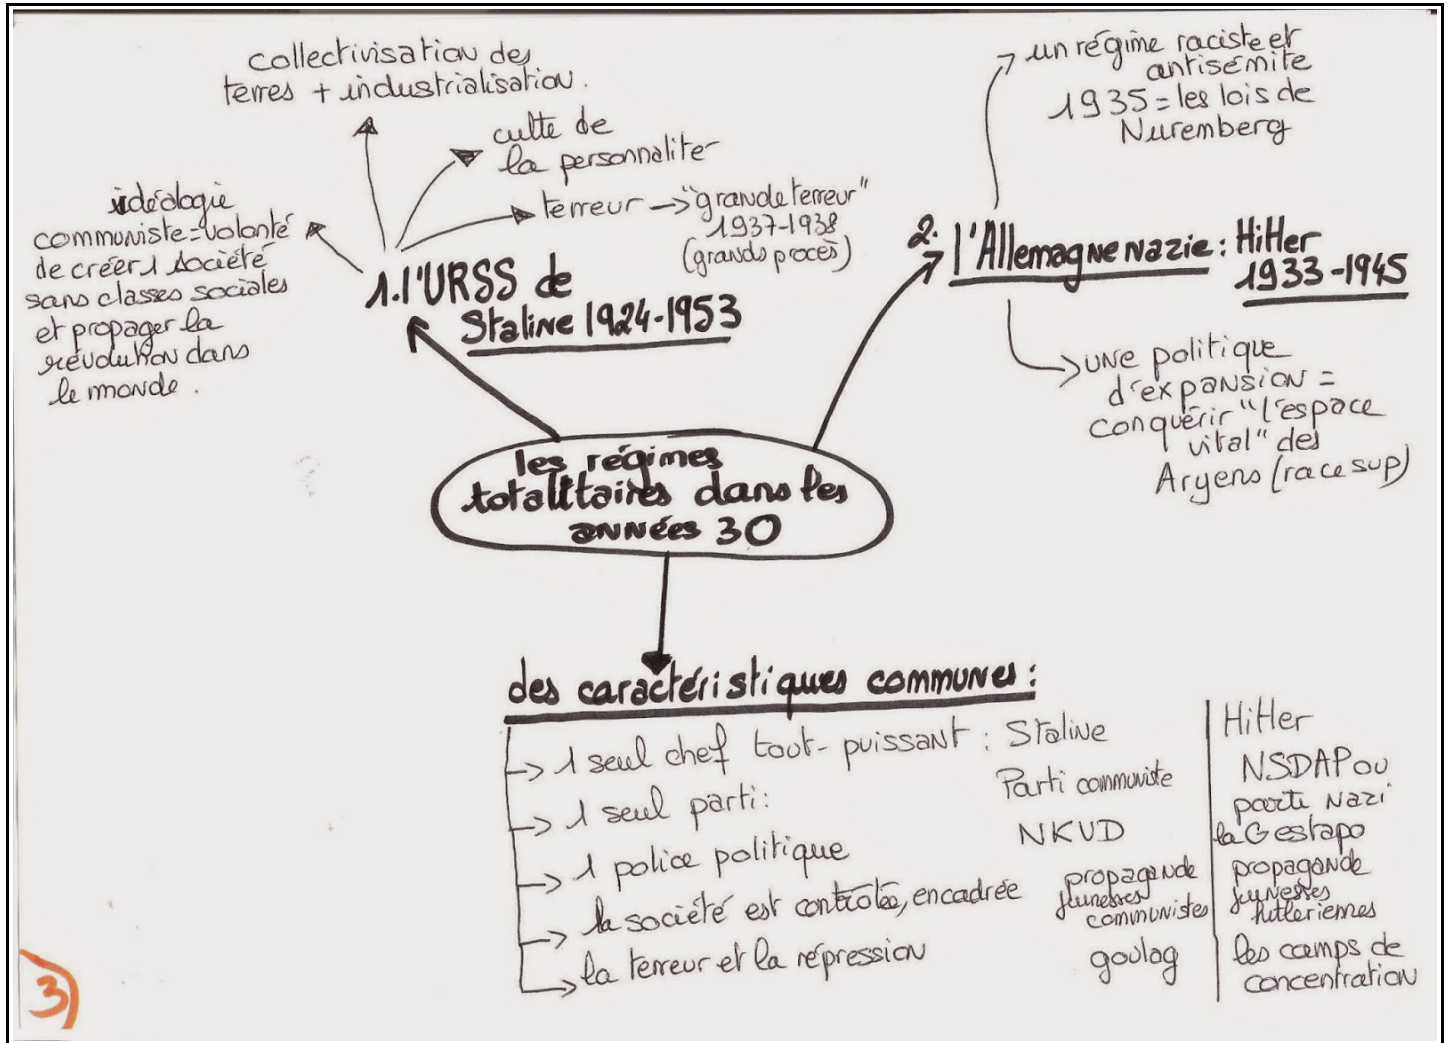 collectivisation des
terres + industrialisation.
culte de
la personnalité
terreur → "grande terreur"
1937-1938
(grands procès)
idéologie
communiste = volonté
de créer 1 société
sans classes sociales
et propager la
révolution dans
le monde.
1. l'URSS de
Staline 1924-1953
un régime raciste et
antisémite
1935 = les lois de
Nuremberg
2. l'Allemagne nazie : Hitler
1933-1945
une politique
d'expansion =
conquérir "l'espace
vital" des
Aryens (race sup)
les régimes
totalitaires dans les
années 30
des caractéristiques communes :
→ 1 seul chef tout-puissant : Staline | Hitler
→ 1 seul parti : Parti communiste | NSDAP ou
parti nazi
→ 1 police politique NKVD | la Gestapo
→ la société est contrôlée, encadrée propagande | propagande
jeunesses | jeunesses
communistes | hitleriennes
→ la terreur et la répression goulag | les camps de
concentration
3)